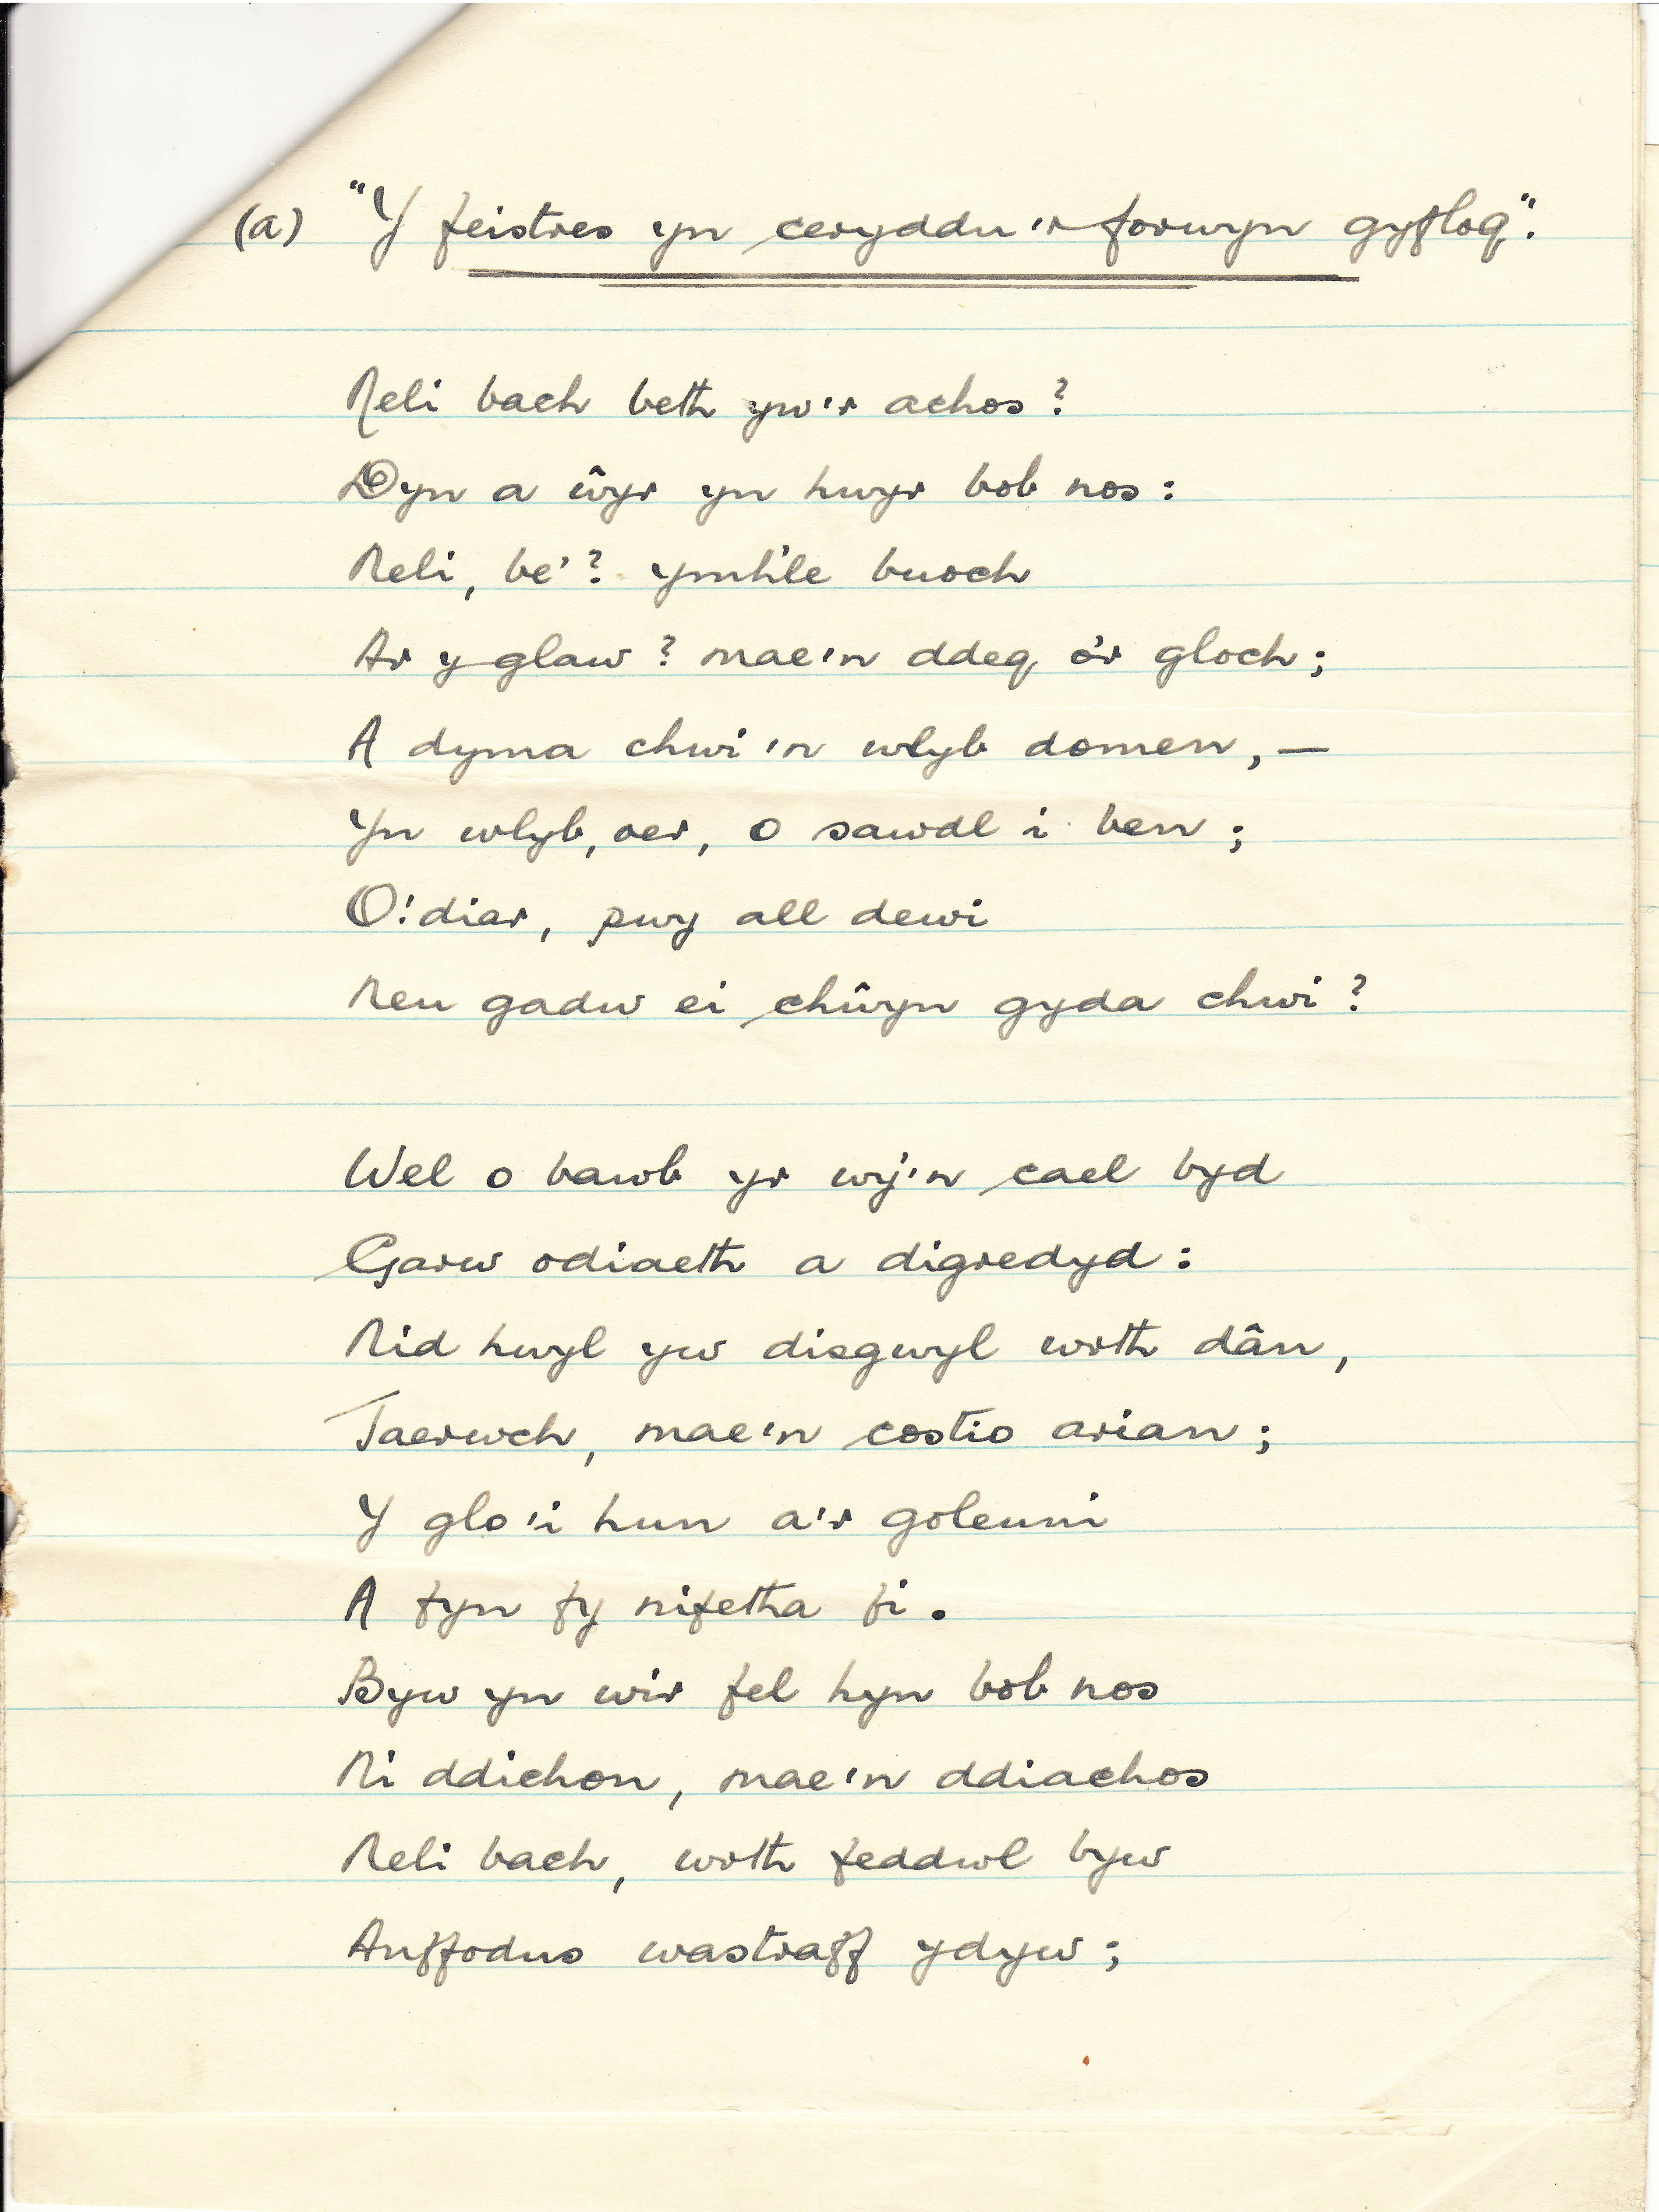 (a) "Y feistres yn ceryddu'r forwyn gyflog".
Neli bach beth yw'r achos?
Dyn a ŵyr yn hwyr bob nos:
Neli, be'? ymh'le buoch
Ar y glaw? mae'n ddeg o'r gloch;
A dyma chwi'n wlyb domen, —
Yn wlyb, oer, o sawdl i ben;
O! diar, pwy all dewi
Neu gadw ei chŵyn gyda chwi?
Wel o bawb yr wy'n cael byd
Garw odiaeth a digredyd:
Nid hwyl yw disgwyl wrth dân,
Taerwch, mae'n costio arian;
Y glo'i hun a'r goleuni
A fyn fy nifetha fi.
Byw yn wir fel hyn bob nos
Ni ddichon, mae'n ddiachos
Neli bach, wrth feddwl byw
Anffodus wastraff ydyw;